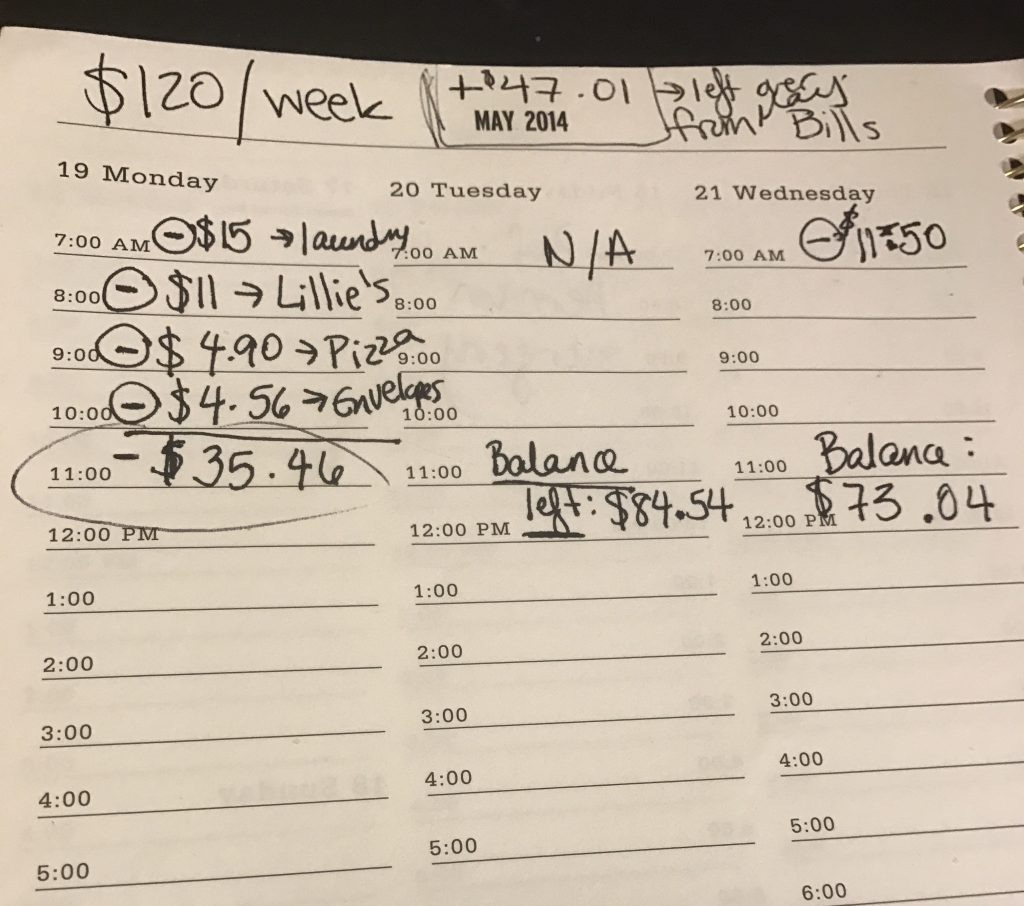 $120/week
+$47.01 → left over
MAY 2014
from Bills
19 Monday
7:00 AM - $15 → laundry
8:00 - $11 → Lillie's
9:00 - $4.90 → Pizza
10:00 - $4.56 → Envelopes
11:00 - $35.46
12:00 PM
1:00
2:00
3:00
4:00
5:00
20 Tuesday
7:00 AM N/A
8:00
9:00
10:00
11:00 Balance
12:00 PM left: $84.54
1:00
2:00
3:00
4:00
5:00
21 Wednesday
7:00 AM - $11.50
8:00
9:00
10:00
11:00 Balance:
12:00 PM $73.04
1:00
2:00
3:00
4:00
5:00
6:00